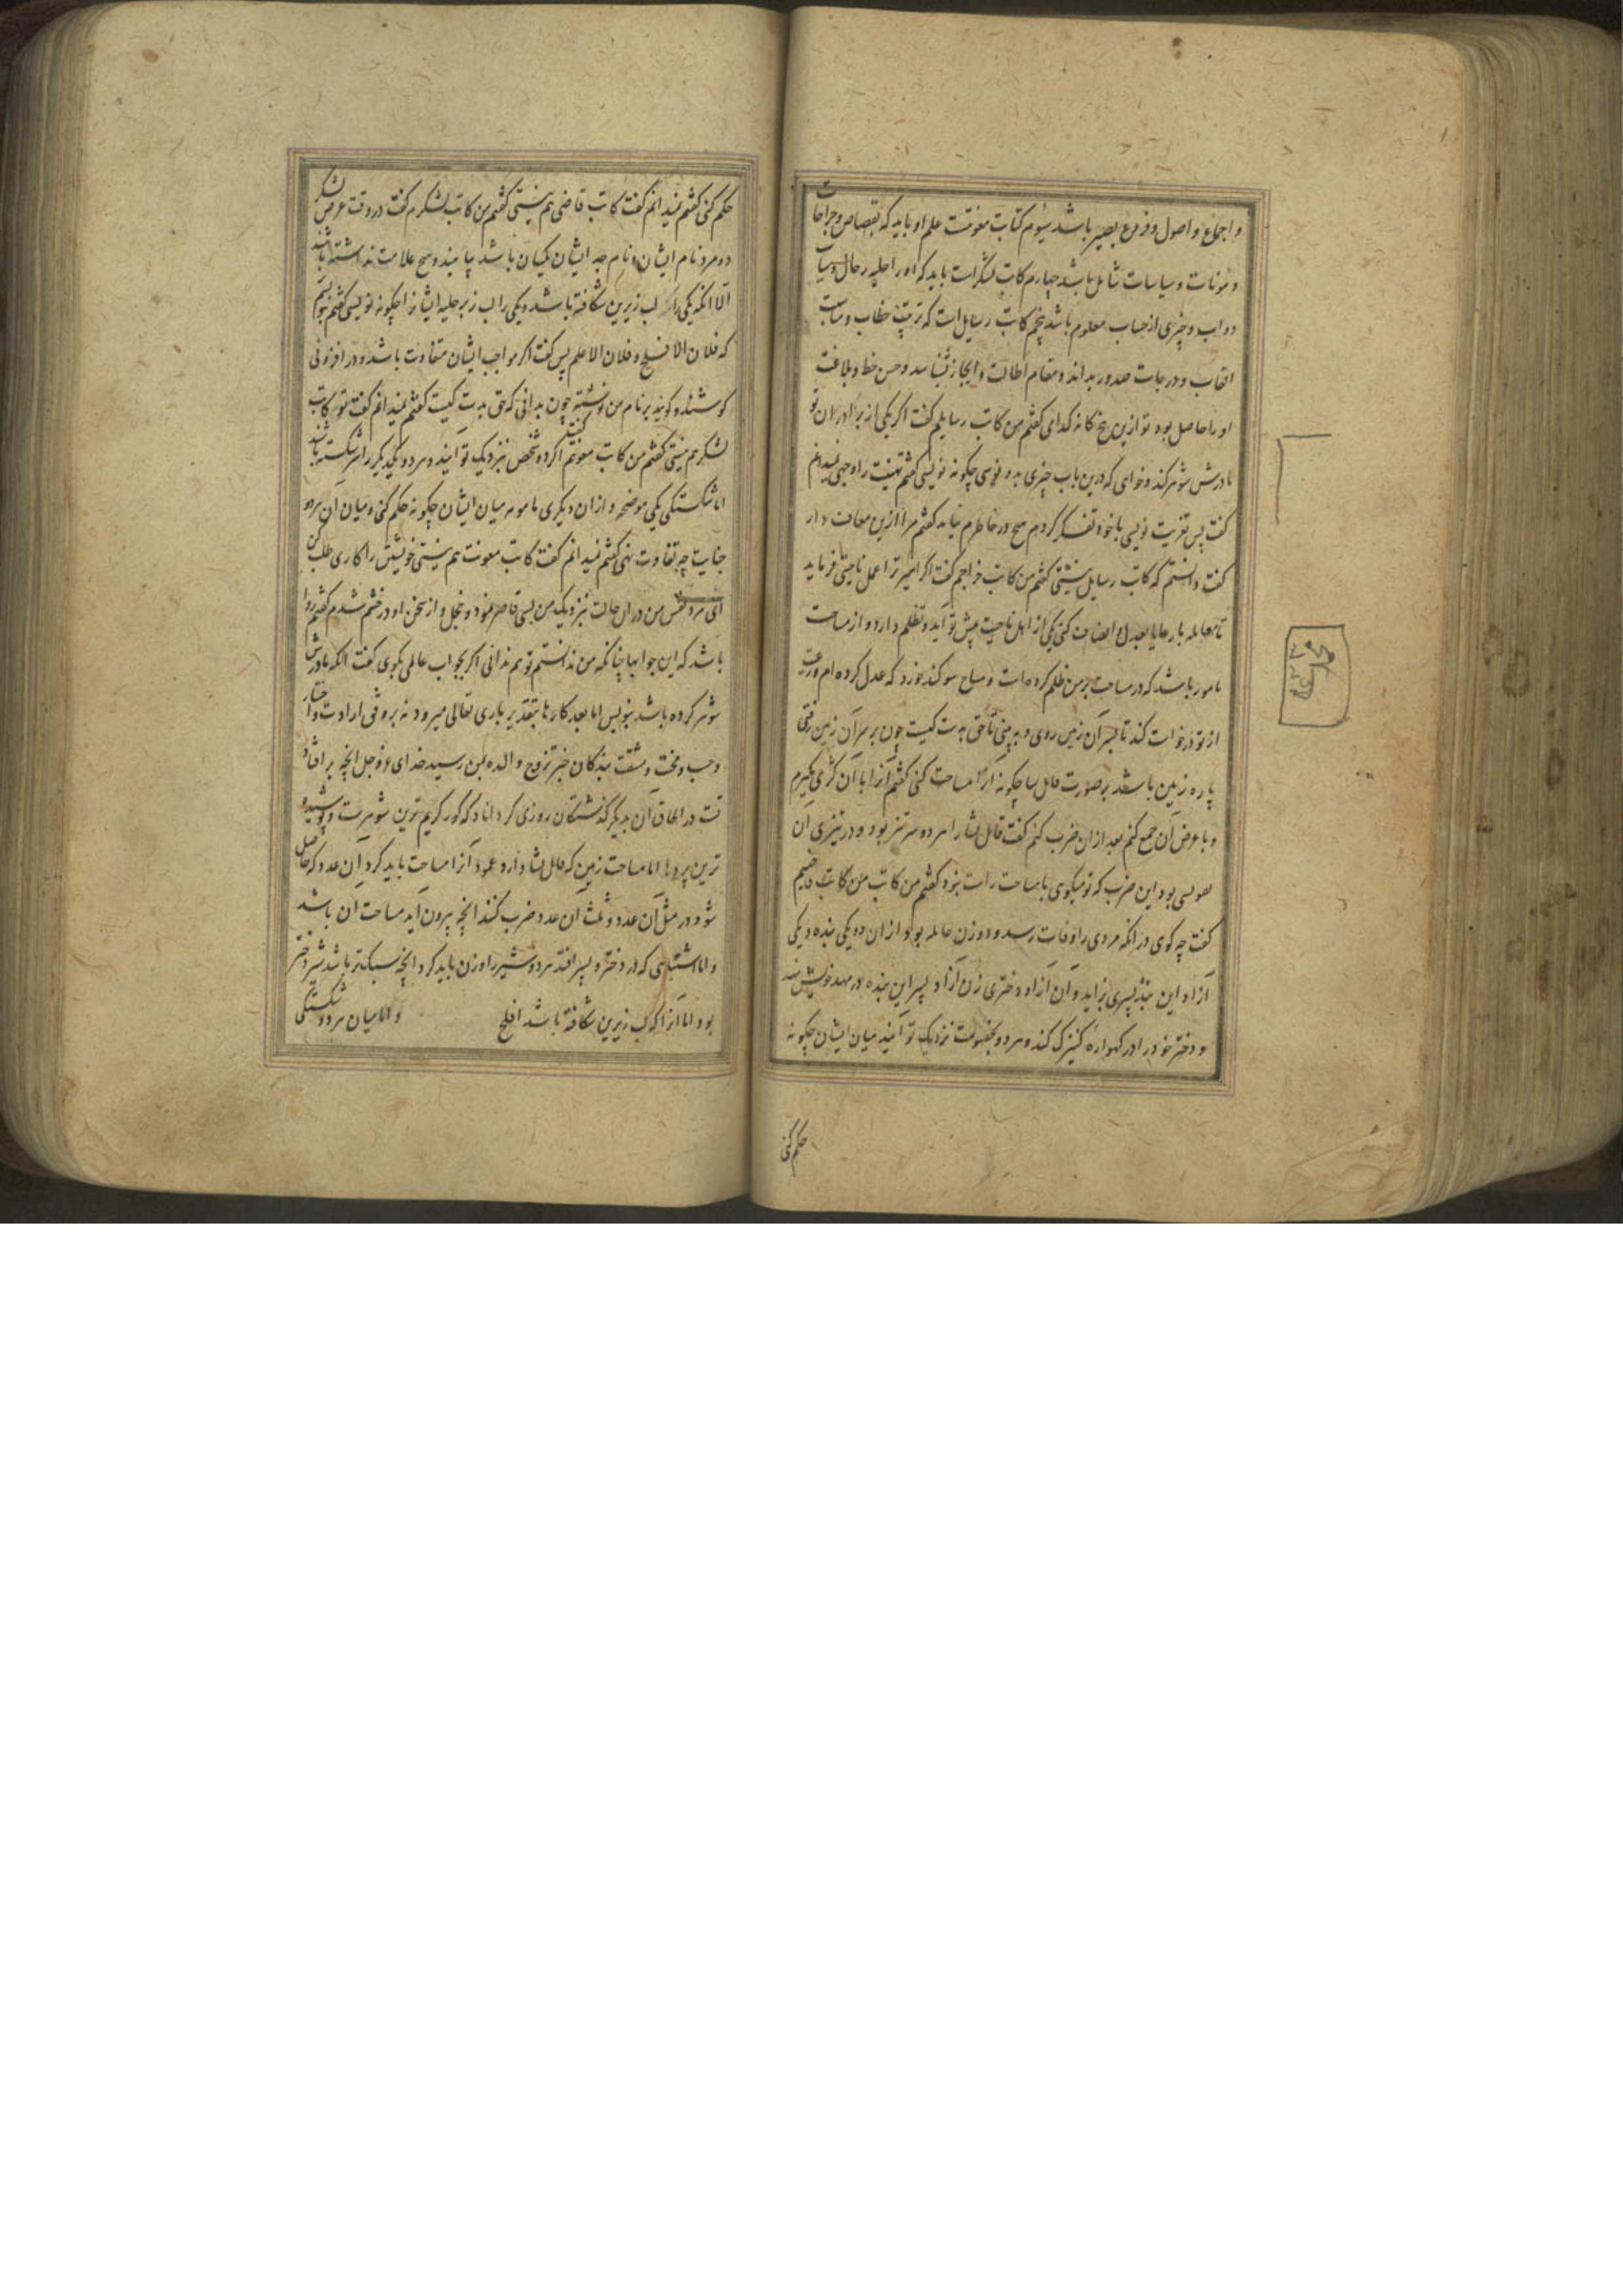 و اجماع و اصول و فروع بصیر باشد سیوم کتابت معونتست علم او باید که بقصاص و جراحات
و مؤنات و سیاسات شامل باشد چهارم کاتب لشکرست باید که او را حلیه رجال و شیات
دواب و چیزی از حساب معلوم باشد پنجم کاتب رسایل است که ترتیب خطاب و مناسبت
القاب و درجات صدور بداند و مقام اطالت و ایجاز بشناسد و حسن خط و بلاغت
او را حاصل بود تو ازین پنج کانه کدامی گفتم من کاتب رسایلم گفت اگر یکی از برادران تو
مادرش شوهر کند و خواهی که درین باب چیزی بدو نویسی چگونه نویسی گفتم تهنیت را وجهی نمیدانم
گفت پس تعزیت نویسی با خود تفکر کردم هیچ در خاطرم نیامد گفتم مرا ازین معاف دار
گفت دانستم که کاتب رسایل نیستی گفتم من کاتب خراجم گفت اگر امیر ترا عمل ناحیتی فرماید
تا معامله با رعایا بعدل و انصاف کنی یکی از اهل ناحیت پیش تو آید و تظلم دارد و از مساحت
مامور باشد که در مساحت بر من ظلم کرده است و مساح سوکند خورد که عدل کرده ام و رعیت
از تو درخواست کند تا بسر آن زمین روی و به بینی تا حق بدست کیست چون بر سر آن زمین رفتی
پاره زمین باشد بر صورت قابل سا چگونه آنرا مساحت کنی گفتم آنرا با آن کژی بگیرم
و با عرض آن جمع کنم بعد از ان ضرب کنم گفت قابل لشا را هر دو سر تیز بود و در تیزی آن
تقویسی بود این ضرب که تو میگوی با مساحت راست نبود گفتم من کاتب من کاتب قاضیم
گفت چه گوی در انکه مردی را وفات رسد و دو زن حامله بود از ان دو یکی بنده و یکی
آزاد این بنده پسری بزاید و آن آزاد دختری زن آزاد پسر این بنده در مهد خویش نهد
و دختر خود را در کهوارهٔ کنیزک کند و هر دو بخصومت نزدیک تو آیند میان ایشان چگونه
حکم کنی
حکم کنی گفتم نمیدانم گفت کاتب قاضی هم نیستی گفتم من کاتب لشکرم گفت در وقت عرض لشکر
دو مرد نام ایشان و نام جد ایشان یکسان باشد بیامیند و هیچ علامت نداشته باشند
الا انکه یکی را لب زیرین شکافته باشد و یکی را لب زبر حلیه ایشانرا چگونه نویسی گفتم بنویسم
که فلان الافلح و فلان الاعلم پس گفت اگر مواجب ایشان متفاوت باشد و در افزونی
کوشند و گویند بر نام من نوشته چون بدانی که حق بدست کیست گفتم نمیدانم گفت تو کاتب
لشکر هم نیستی گفتم من کاتب معونتم گفت اگر دو شخص نزدیک تو آیند و هر دو یکدیگر را سر شکسته باشند
اما شکستگی یکی موضحه و از ان دیگری مامومه میان ایشان چگونه حکم کنی و میان آن هر دو
جنایت چه تفاوت نهی گفتم نمیدانم گفت کاتب معونت هم نیستی خویشتن را کاری طلب کن
ای مرد نفس من در ان حالت نزدیک من بسی قاصر نمود و خجل و از سخن او در خشم شدم گفتم روا
باشد که این جوابها چنانکه من ندانستم تو هم ندانی اگر بجواب عالمی بگوی گفت انکه مادرش
شوهر کرده باشد بنویس اما بعد کارها بتقدیر باری تعالی میرود نه بر وفق ارادت و اختیار
و حب و محنت و مشقت بندگان خبر تزوج والده بمن رسید خدای عزوجل انچه بر افتاد
تست در الحاق آن بدیگر گذشتگان روزی گرداناد که گور کریم ترین شوهرست و پوشیده
ترین پردها اما مساحت زمین که قابل لشا دارد عمود آنرا مساحت باید کرد آن عدد که حاصل
شود در مثل آن عدد و ثلث آن عدد ضرب کنند انچه بیرون آید مساحت آن باشد
و اما اشتباهی که در دختر و پسر افتد هر دو شیر را وزن باید کرد انچه سبکتر باشد شیر دختر
بود اما آنرا که لب زیرین شکافته باشد افلح و اما میان هر دو شکستگی